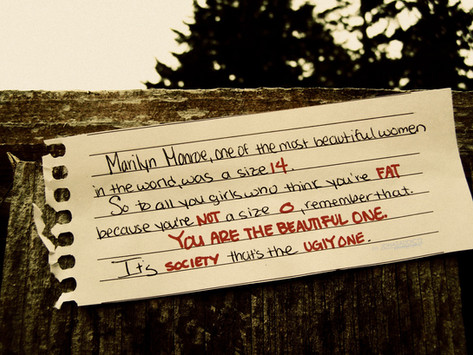 Marilyn Monroe, one of the most beautiful women
in the world, was a size 14.
So to all you girls who think you're FAT
because you're NOT a size 0, remember that.
YOU ARE THE BEAUTIFUL ONE.
It's SOCIETY that's the UGLY ONE.